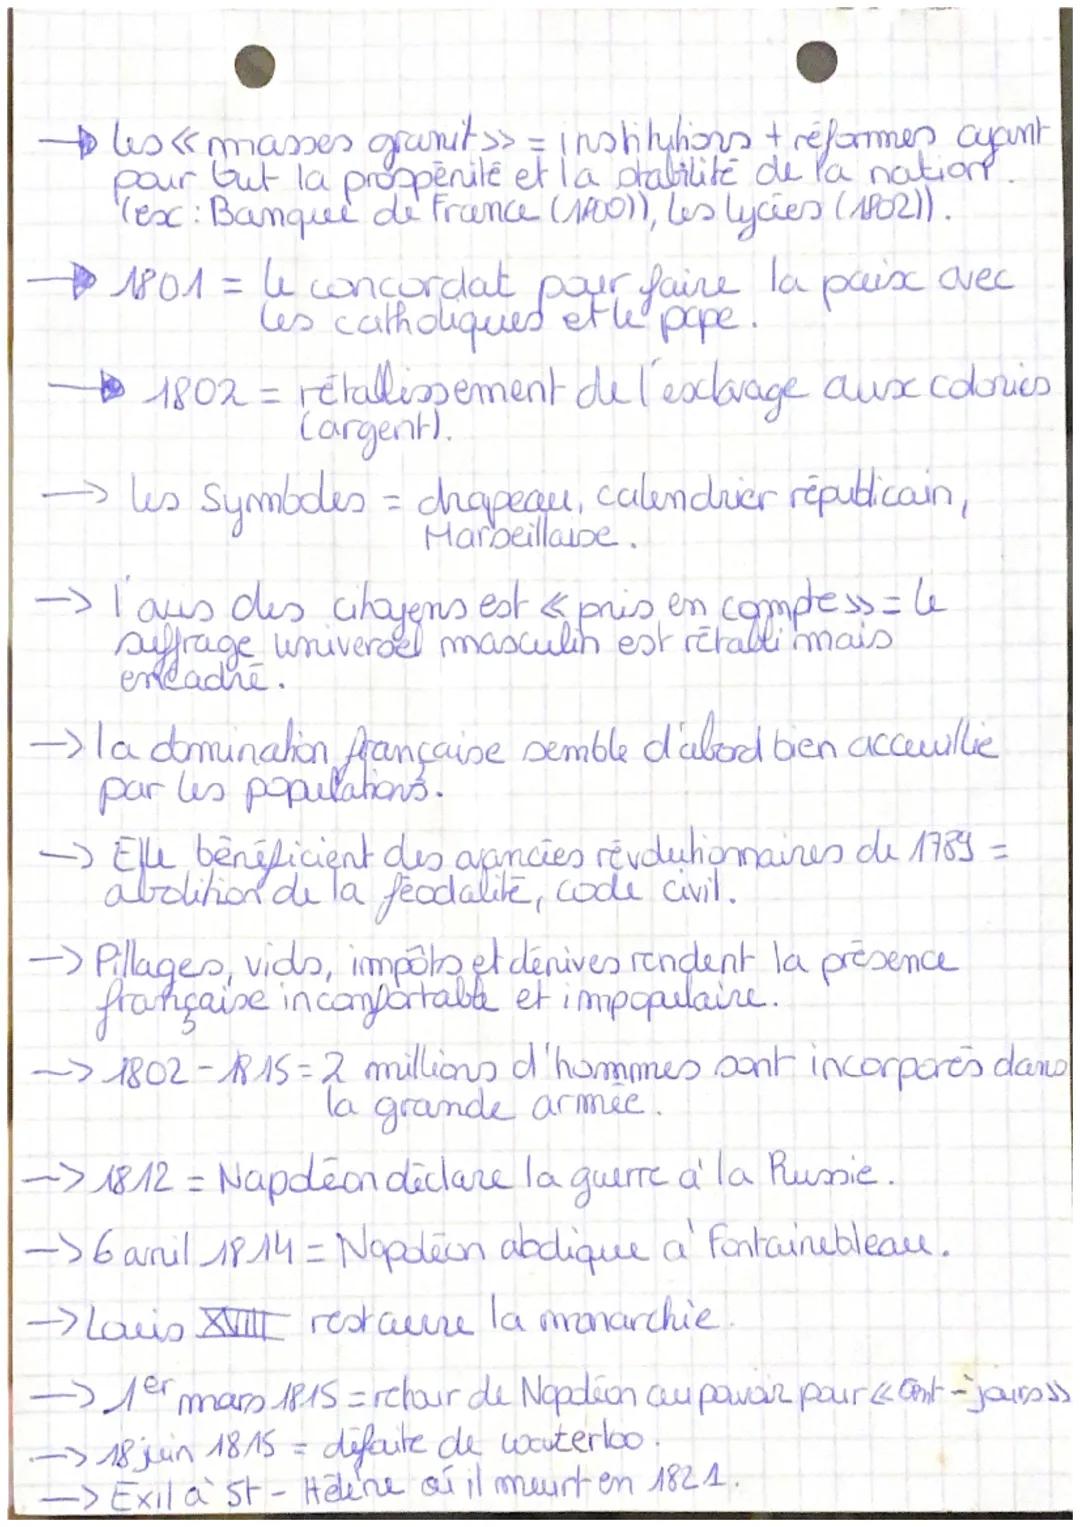 → les « masses granit » = institutions + réformes ayant
pour but la prospérité et la stabilité de la nation.
(ex : Banque de France (1800)), les lycées (1802)).
→ 1801 = le concordat pour faire la paix avec
les catholiques et le pape.
→ 1802 = rétablissement de l'esclavage aux colonies
(argent).
→ les symboles = drapeau, calendrier républicain,
Marseillaise.
→ l'avis des citoyens est « pris en compte » = le
suffrage universel masculin est rétabli mais
encadré.
→ la domination française semble d'abord bien accueillie
par les populations.
→ Elle bénéficient des avancées révolutionnaires de 1789 =
abolition de la féodalité, code civil.
→ Pillages, viols, impôts et dérives rendent la présence
française inconfortable et impopulaire.
→ 1802 - 1815 = 2 millions d'hommes sont incorporés dans
la grande armée.
→ 1812 = Napoléon déclare la guerre à la Russie.
→ 6 avril 1814 = Napoléon abdique à Fontainebleau.
→ Louis XVIII restaure la monarchie.
→ 1er mars 1815 = retour de Napoléon au pouvoir pour « Cent - jours »
→ 18 juin 1815 = défaite de waterloo.
→ Exil à St - Hélène où il meurt en 1821.